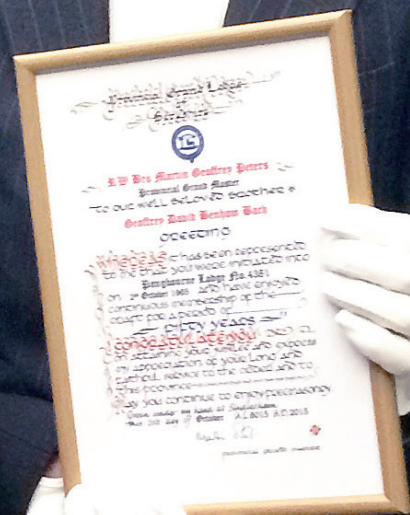 Provincial Grand Lodge
of
Berkshire
R W Bro Martin Geoffrey Peters
Provincial Grand Master
To our well beloved brother
Geoffrey David Benham Bach
Greeting
Whereas it has been represented
to me that you were initiated into
Pangbourne Lodge No. 4351
on 2nd October 1965 and have enjoyed
continuous membership of the
craft for a period of
fifty years
Congratulate you
on attaining your jubilee and express
my appreciation of your long and
faithful service to the craft and to
this Province
May you continue to enjoy freemasonry
Given under my hand at
this 2nd day of October A.L. 6015 A.D. 2015
Provincial Grand Master